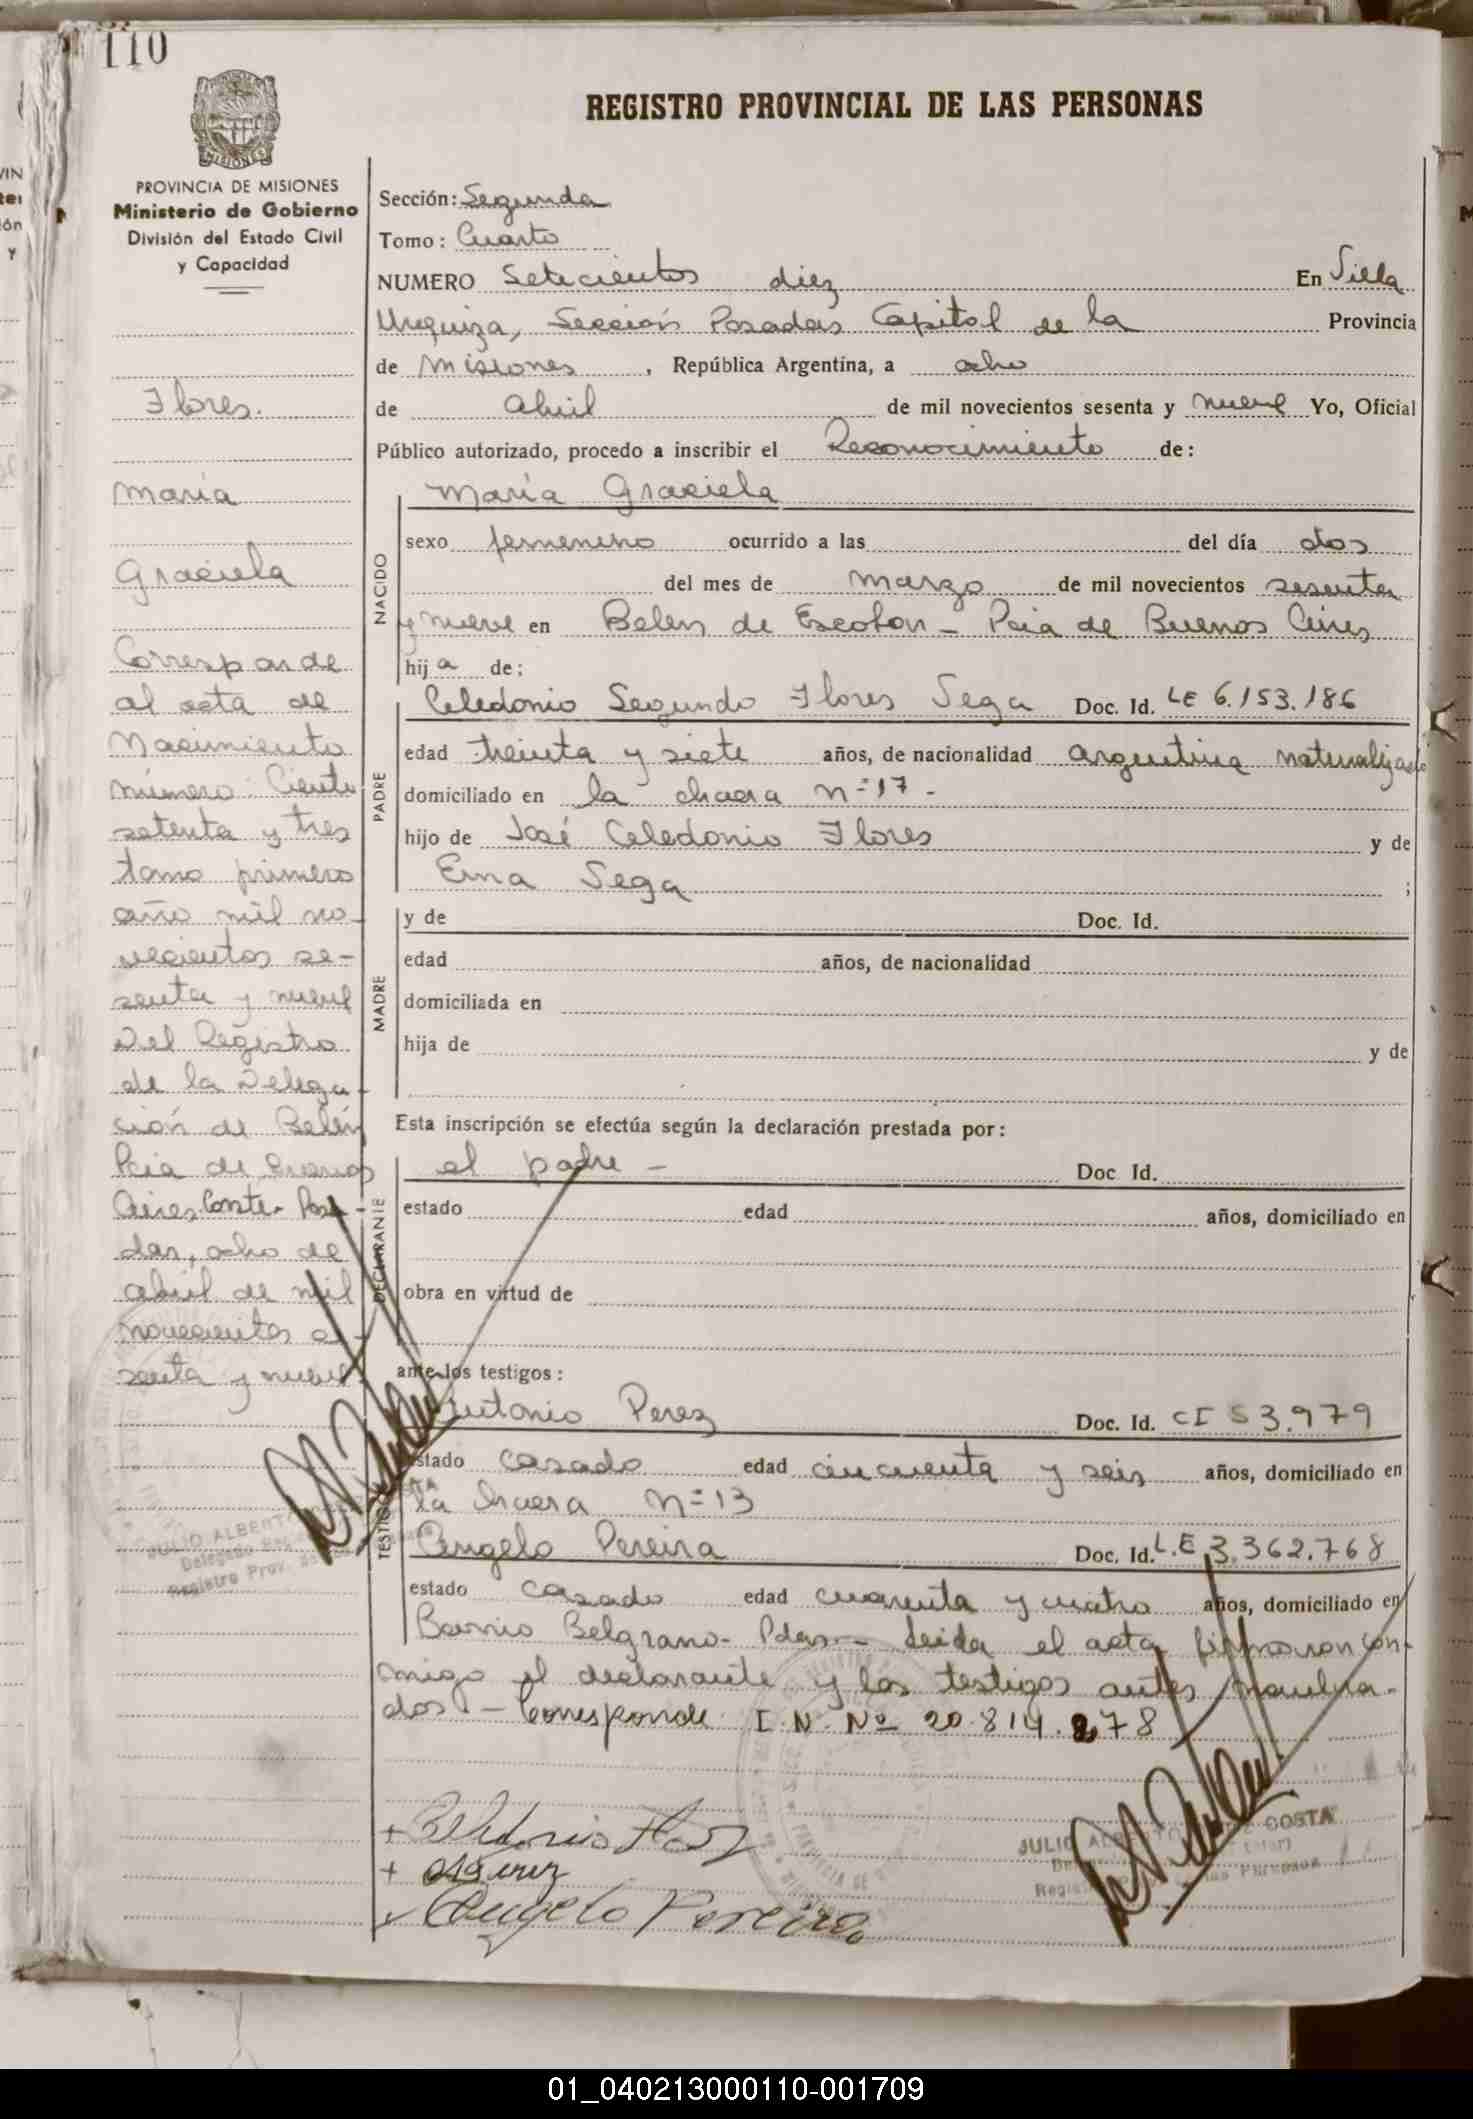 110
REGISTRO PROVINCIAL DE LAS PERSONAS
MISIONES
PROVINCIA DE MISIONES
Ministerio de Gobierno
División del Estado Civil
y Capacidad
Flores.
María
Graciela
Corresponde
al acta de
Nacimiento
número: Ciento
setenta y tres
tomo primero
año mil no-
vecientos se-
senta y nueve
Del Registro
de la Delega-
ción de Belén
Pcia de Buenos
Aires. Conste. Posa-
das, ocho de
abril de mil
novecientos se-
senta y nueve
JULIO ALBERTO
Registro Prov.
Sección: Segunda
Tomo: Cuarto
NUMERO Setecientos diez En Villa
Urquiza, Sección Posadas Capital de la Provincia
de Misiones, República Argentina, a ocho
de abril de mil novecientos sesenta y nueve Yo, Oficial
Público autorizado, procedo a inscribir el Reconocimiento de:
NACIDO
María Graciela
sexo femenino ocurrido a las del día dos
del mes de marzo de mil novecientos sesenta
y nueve en Belen de Escobar - Pcia de Buenos Aires
hija de:
PADRE
Celedonio Segundo Flores Sega Doc. Id. LE 6.153.186
edad treinta y siete años, de nacionalidad argentina naturalizado
domiciliado en la chacra n=17 -
hijo de José Celedonio Flores y de
Ema Sega ;
MADRE
y de Doc. Id.
edad años, de nacionalidad
domiciliada en
hija de y de
Esta inscripción se efectúa según la declaración prestada por:
DECLARANTE
el padre - Doc. Id.
estado edad años, domiciliado en
obra en virtud de
ante los testigos:
TESTIGOS
Antonio Perez Doc. Id. CI 53.979
estado casado edad cincuenta y seis años, domiciliado en
la chacra n=13
Angelo Pereira Doc. Id. L.E 3.362.768
estado casado edad cuarenta y cuatro años, domiciliado en
Barrio Belgrano - Pdas - Leida el acta firmaron con-
migo el declarante y los testigos antes
dos - Corresponde I.N. Nº 20.814.278
+ Celedonio Flores
+
✓ Angelo Pereira
JULIO ALBERTO COSTA
01_040213000110-001709